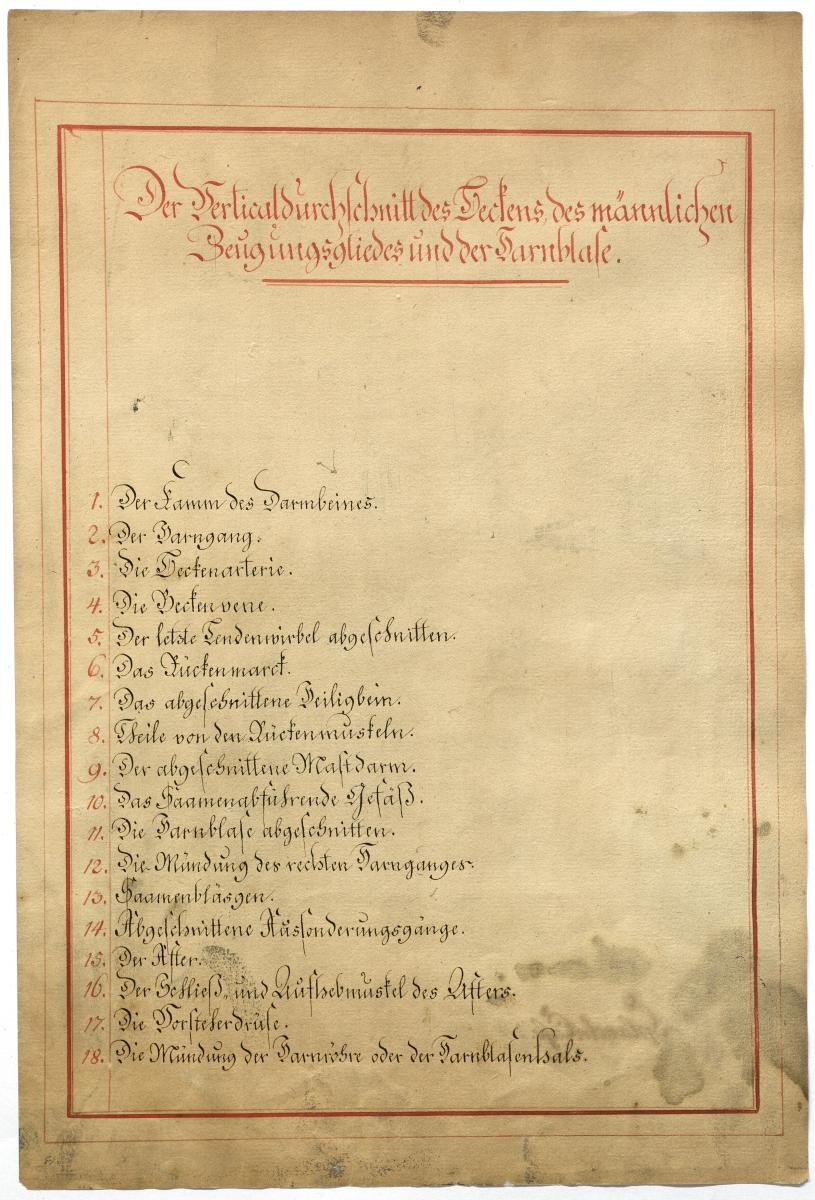 Der Verticaldurchschnitt des Beckens, des männlichen
Zeugungsgliedes und der Harnblase.
1. Der Kamm des Darmbeines.
2. Der Harngang.
3. Die Beckenarterie.
4. Die Beckenvene.
5. Der letzte Lendenwirbel abgeschnitten.
6. Das Rückenmarck.
7. Das abgeschnittene Heiligbein.
8. Theile von den Rückenmuskeln.
9. Der abgeschnittene Mastdarm.
10. Das Saamenabführende Gefäß.
11. Die Harnblase abgeschnitten.
12. Die Mündung des rechten Harnganges.
13. Saamenbläsgen.
14. Abgeschnittene Aussonderungsgänge.
15. Der After.
16. Der Schließ- und Aufhebmuskel des Afters.
17. Die Vorsteherdrüse.
18. Die Mündung der Harnröhre oder der Harnblasenhals.